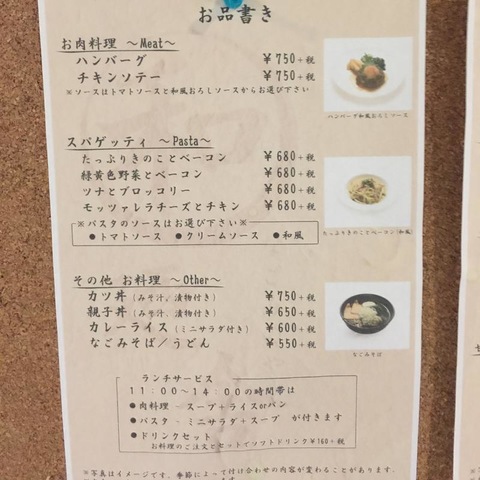 お品書き
お肉料理 〜Meat〜
ハンバーグ ￥750+税
チキンソテー ￥750+税
※ソースはトマトソースと和風おろしソースからお選び下さい
ハンバーグ和風おろしソース
スパゲッティ 〜Pasta〜
たっぷりきのことベーコン ￥680+税
緑黄色野菜とベーコン ￥680+税
ツナとブロッコリー ￥680+税
モッツァレラチーズとチキン ￥680+税
※パスタのソースはお選び下さい※
●トマトソース ●クリームソース ●和風
たっぷりきのことベーコン(和風)
その他 お料理 〜Other〜
カツ丼(みそ汁,漬物付き) ￥750+税
親子丼(みそ汁,漬物付き) ￥650+税
カレーライス(ミニサラダ付き) ￥600+税
なごみそば/うどん ￥550+税
なごみそば
ランチサービス
11:00〜14:00の時間帯は
●肉料理 - スープ+ライスorパン
●パスタ - ミニサラダ+スープ が付きます
●ドリンクセット
お料理のご注文とセットでソフトドリンク¥160+税/
※写真はイメージです。季節によって付け合わせの内容が変わることがあります.